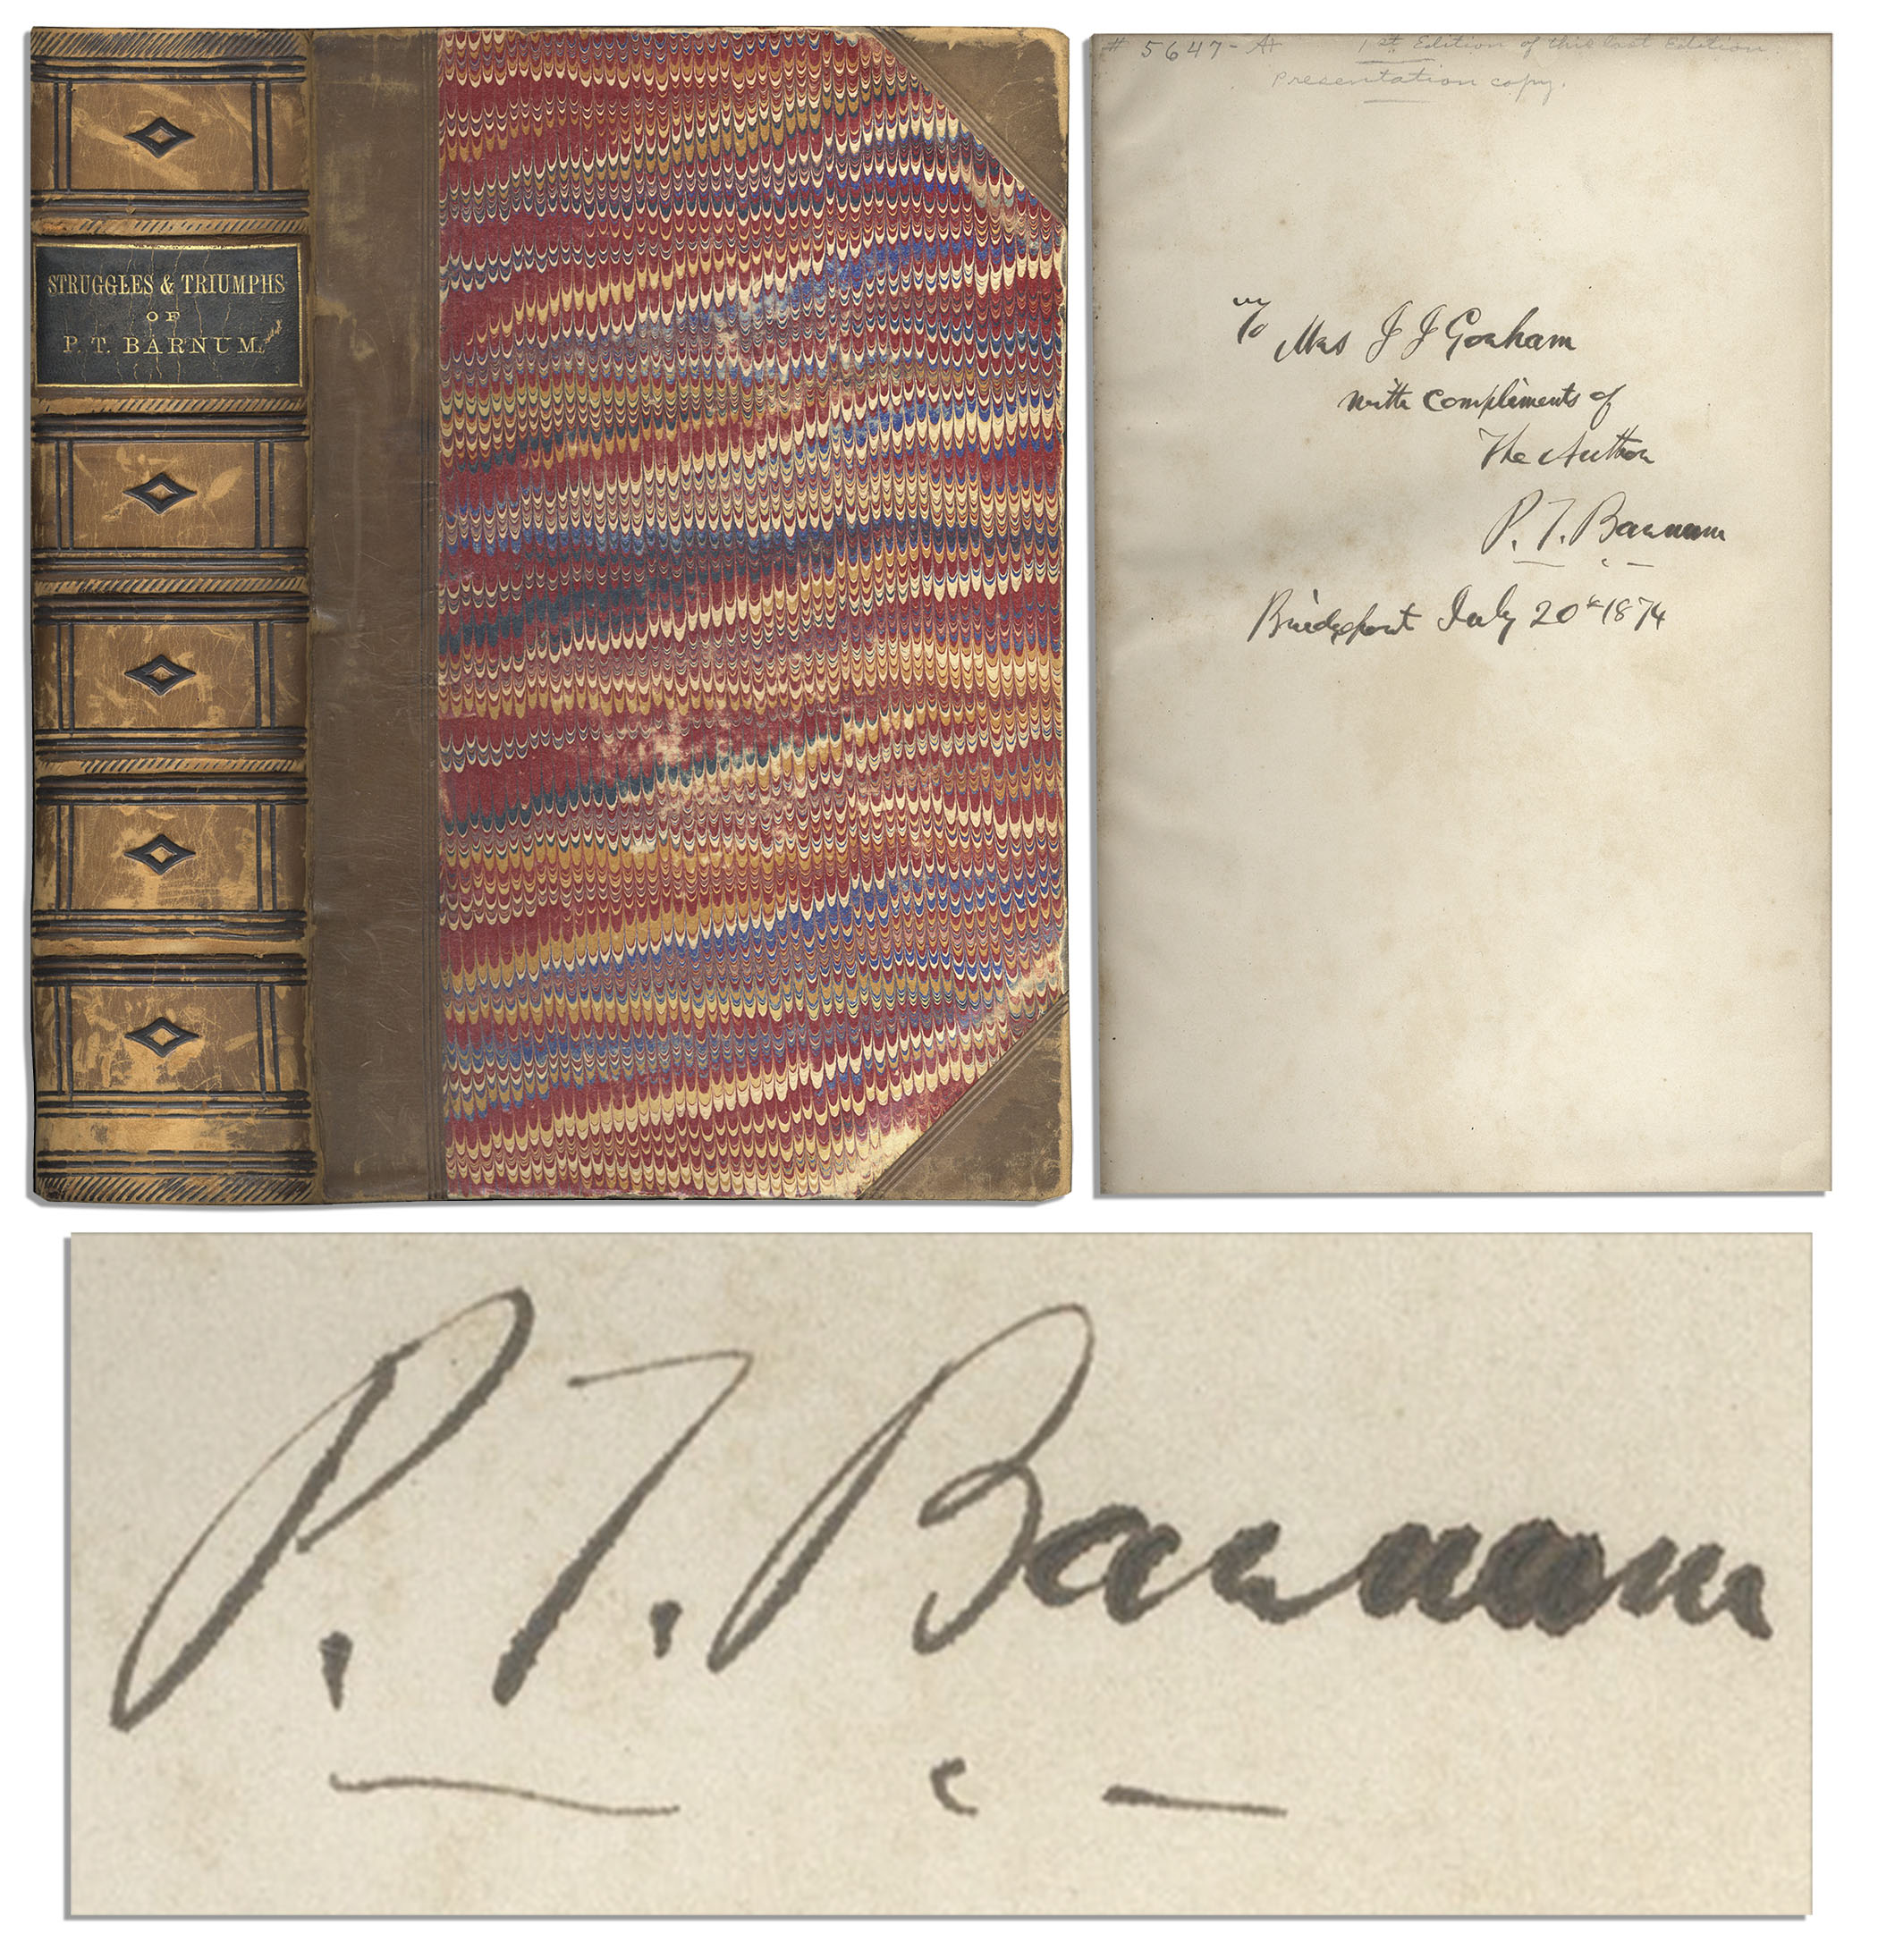 STRUGGLES & TRIUMPHS
OF
P. T. BARNUM.
# 5647- A+ 1st Edition of this last Edition.
Presentation copy.
To Mrs J J Gorham
with compliments of
The Author
P. T. Barnum
Bridgeport July 20th 1874
P. T. Barnum